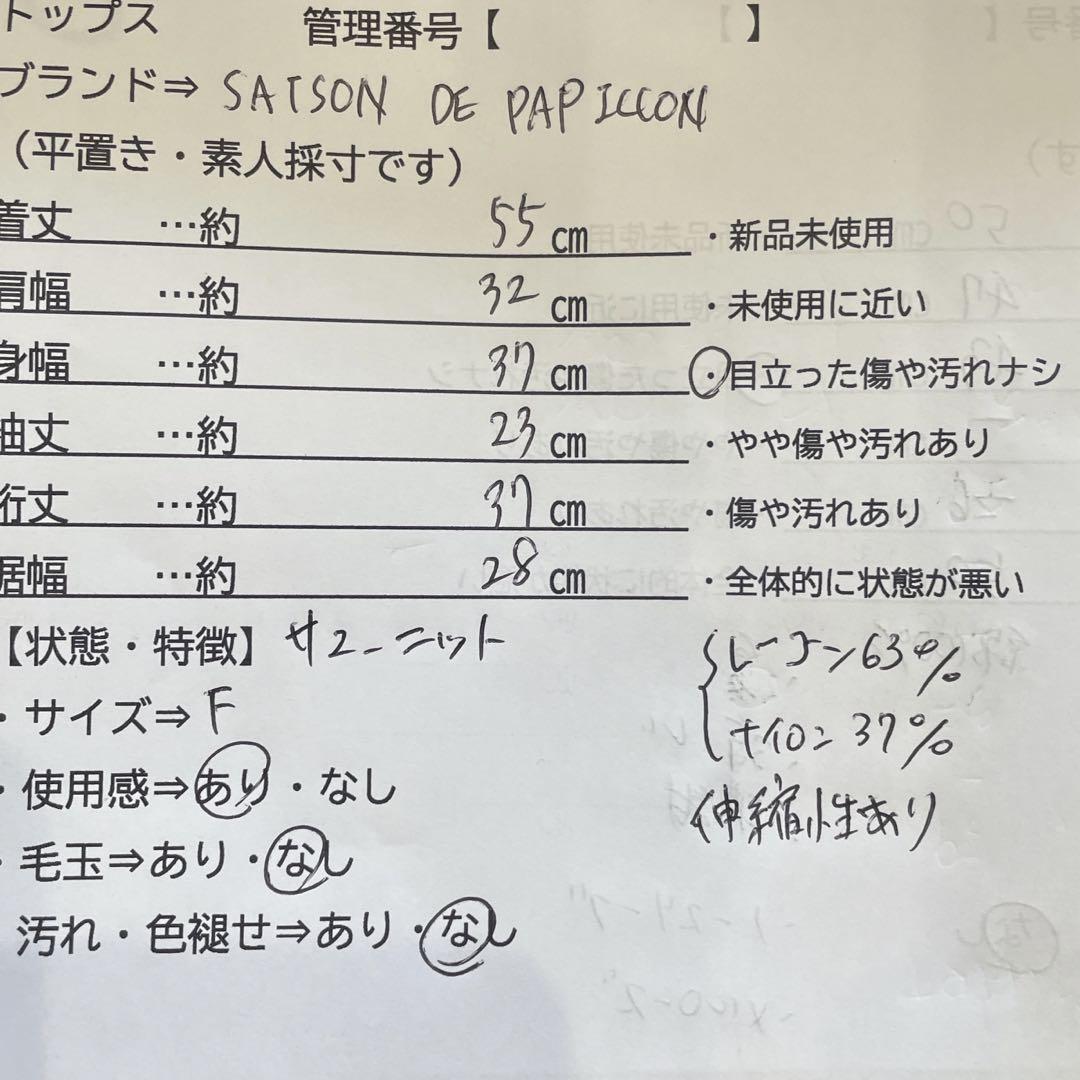 トップス 管理番号【 】
ブランド⇒ SAISON DE PAPILLON
（平置き・素人採寸です）
着丈 …約 55 cm ・新品未使用
肩幅 …約 32 cm ・未使用に近い
身幅 …約 37 cm ・目立った傷や汚れナシ
袖丈 …約 23 cm ・やや傷や汚れあり
裄丈 …約 37 cm ・傷や汚れあり
裾幅 …約 28 cm ・全体的に状態が悪い
【状態・特徴】サマーニット レーヨン63%
・サイズ⇒ F ナイロン 37%
・使用感⇒あり・なし 伸縮性あり
・毛玉⇒あり・なし
汚れ・色褪せ⇒あり・なし